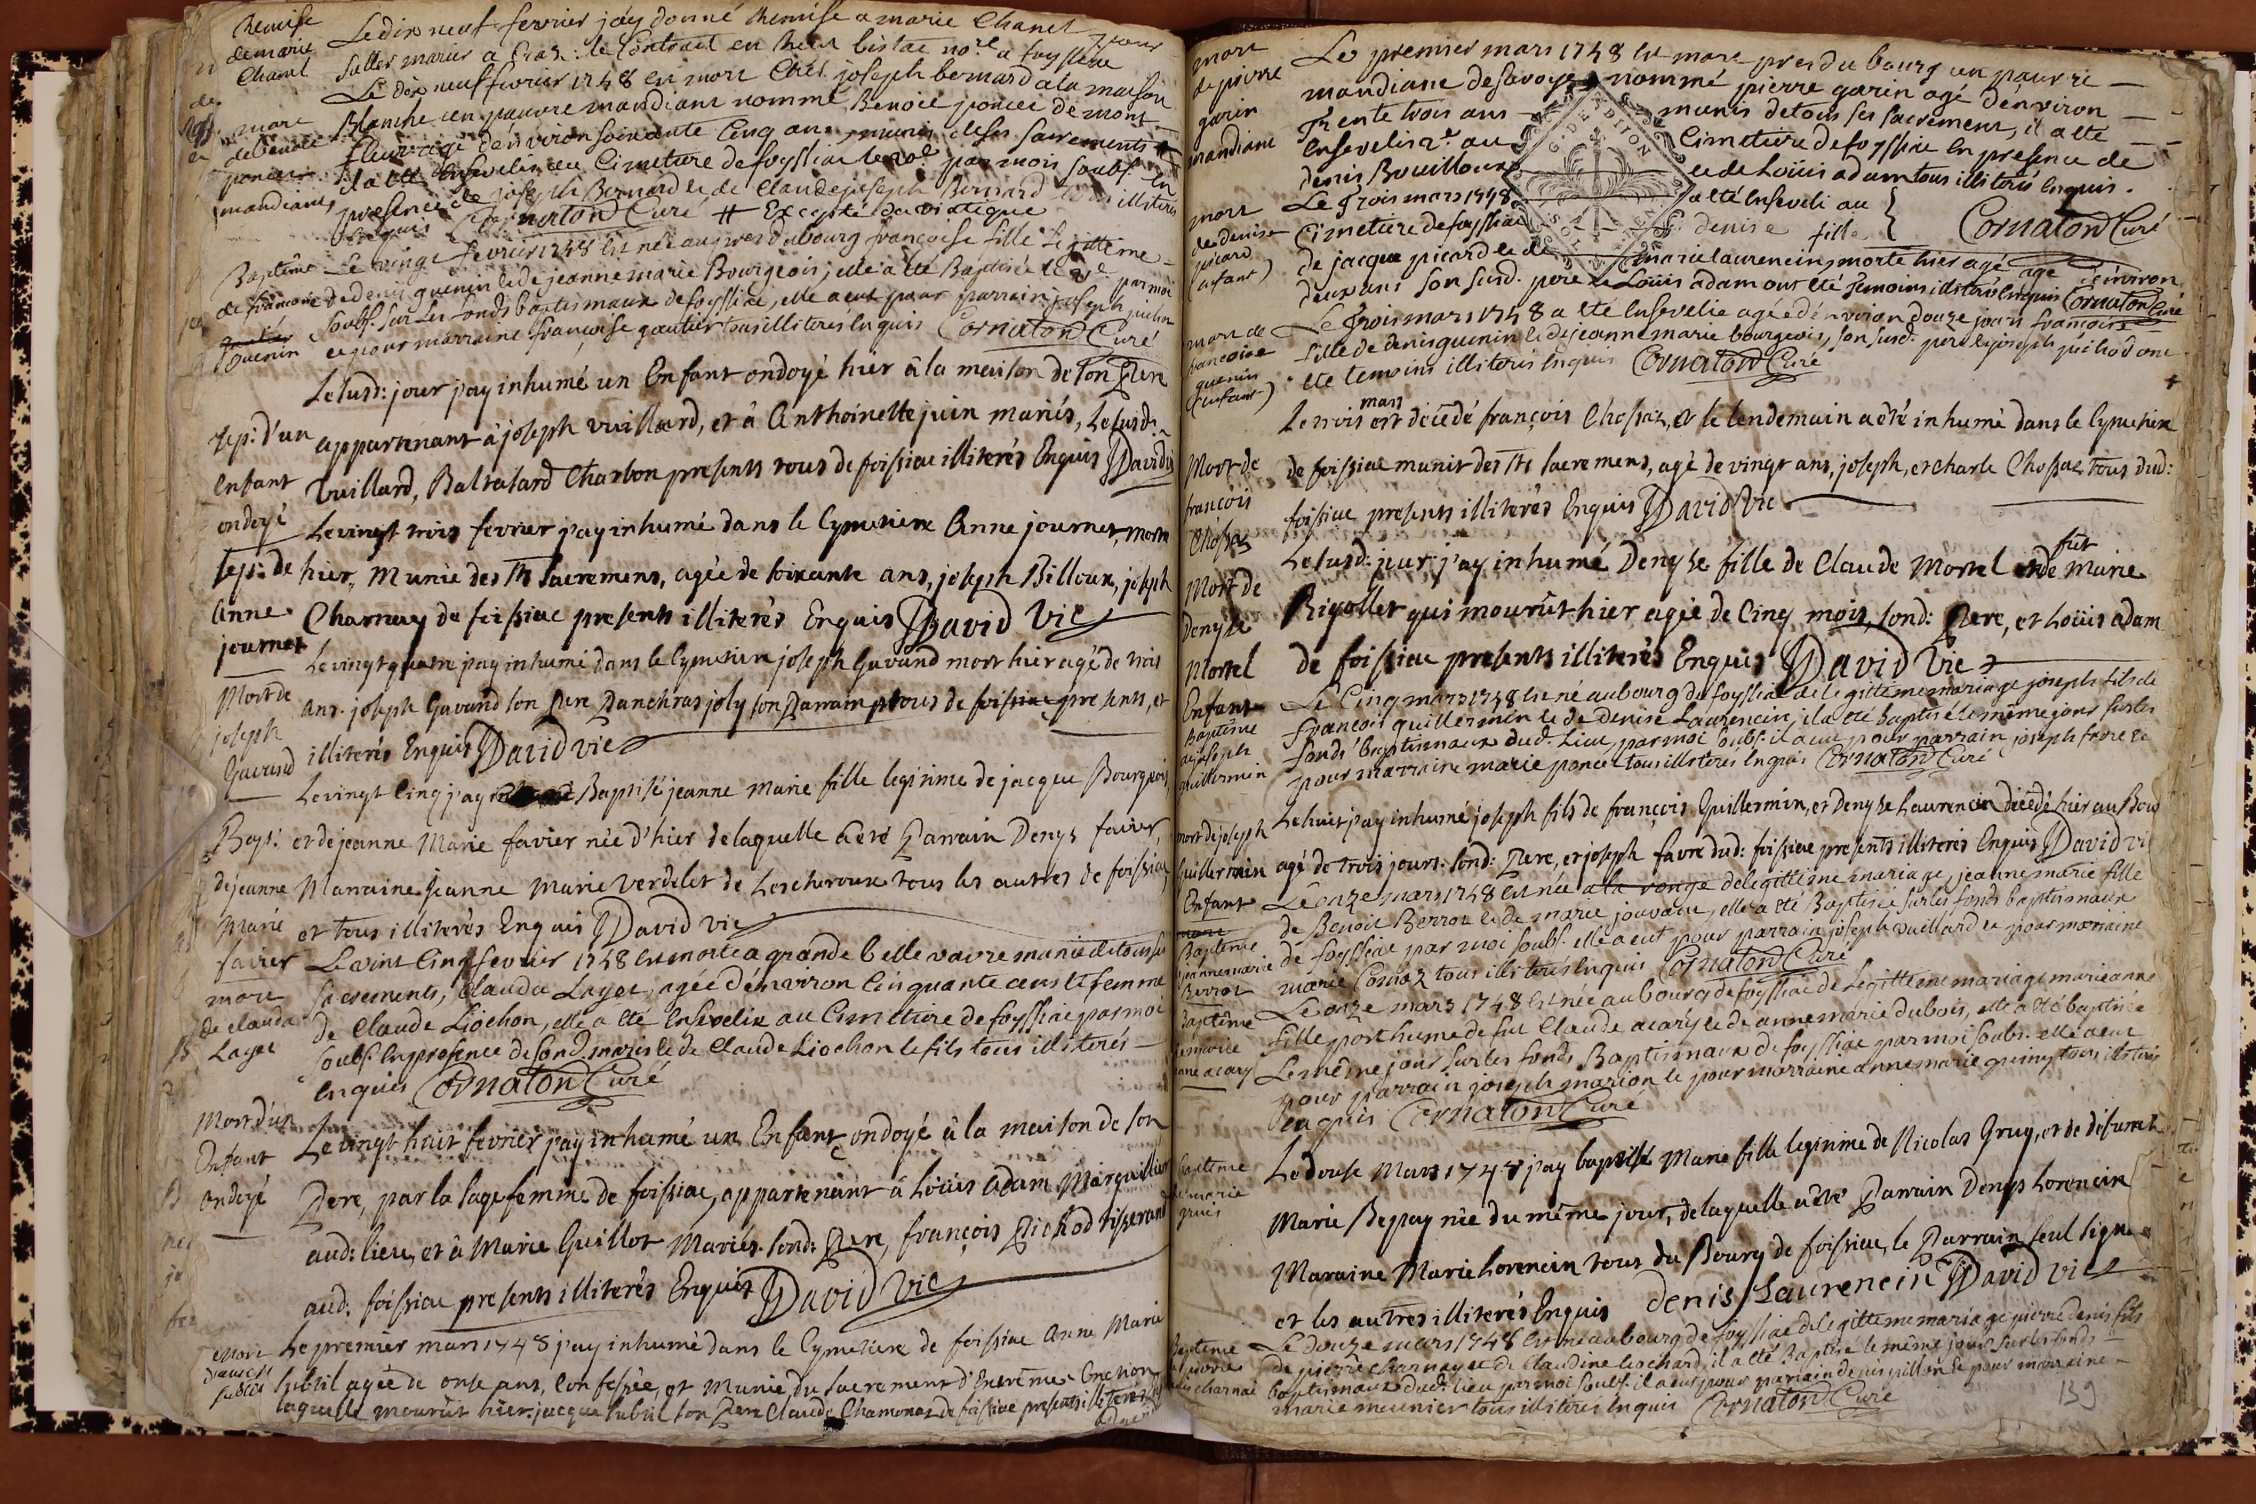 Remise
de marie
Chanel
Le dix neuf fevrier j'ay donné Remise a marie Chanel pour
s'aller marier a Cras: le Contrat en
Le dix neuf fevrier 1748 est mort Chés joseph bernard a la maison
mort
de benoit
poncet
mandiant
Blanche un pauvre mandiant nommé Benoit poncet de mont
fleur agé d'environ soixante Cinq ans, munis de ses sacrements
il a été Ensevelis au Cimetiere de foyssiac par moi soubs. En
presence de joseph Bernard et de Claude joseph Bernard illiterés
Enquis Cornaton Curé # Excepté du viatique
Baptême
de francoise
guenin
Le vingt fevrier 1748 est née au pres du bourg françoise fille legittime
de denis guenin et de jeanne marie Bourgeois, elle a été Baptisée par moi
soubs. sur les fonds baptismaux de foyssiac, elle a eut pour parrain joseph
et pour marraine françoise gautier tous illiterés Enquis Cornaton Curé
Sep: d'un
enfant
ondoyé
Le susd: jour j'ay inhumé un Enfant ondoyé hier à la maison de son Pere
appartenant à joseph vuillard, et à Anthoinette juin mariés, Le susd:
vuillard, Baltasard Charbon presents tous de foissiac illiterés Enquis David vic
Sep: de
Anne
journet
Le vingt trois fevrier j'ay inhumé dans le Cymetiere Anne journet, morte
hier, Munie des Sts Sacremens, agée de soixante ans, joseph Billoux, joseph
Charnay de foissiac presents illiterés Enquis David Vic
Mort de
joseph
Gavand
Le vingt quatre j'ay inhumé dans le Cymetiere joseph Gavand mort hier agé de trois
ans. joseph Gavand son Pere Panchras joly son Parrain tous de foissiac presents, et
illiterés Enquis David vic
Bapt:
de jeanne
Marie
favier
Le vingt Cinq j'ay Baptisé jeanne Marie fille legitime de jacque Bourgeois,
et de jeanne Marie favier née d'hier de laquelle a été Parrain Denys favier
Marraine Jeanne Marie Verdelet de Lescheroux tous les autres de foissiac
et tous illiterés Enquis David vic
mort
de clauda
Layet
Le vint Cinq fevrier 1748 est morte a grande belle vavre munie de tous ses
sacrements, Clauda Layet, agée d'environ Cinquante ans et femme
de Claude Liochon, elle a été Ensevelie au Cimetiere de foyssiac par moi
soubs. En presence de sond. maris et de Claude Liochon le fils tous illiterés
Enquis Cornaton Curé
Mort d'un
Enfant
ondoyé
Le vingt huit fevrier j'ay inhumé un Enfant ondoyé à la maison de son
Pere, par la sage femme de foissiac, appartenant à Loüis Adam Marguillier
aud: lieu, et à Marie Guillot Mariés. sond: Pere, françois Pichod tisserand
aud. foissiac presents illiterés Enquis David Vic
Le premier mars 1748 j'ay inhumé dans le Cymetiere de foissiac Anne Marie
Subtil agée de onse ans, Confessée, et Munie du Sacrement d'Extrême Onction
laquelle mourût hier. jacque subtil son Pere Claude Chamonas de foissiac presents illiterés
mort
de pierre
garin
mandiant
Le premier mars 1748 est mort pres du bourg un pauvre
mandiant de savoye nommé pierre garin agé d'environ
Trente trois ans munis de tous ses sacrement, il a été
Ensevelis au Cimetiere de foyssiac en presence de
denis Bouilloux et de Loüis adam tous illiterés Enquis.
G. DE DITION
mort
de denise
picard
(enfant)
Le Trois mars 1748 a été Enseveli au
Cimetiere de foyssiac denise fille
Cornaton Curé
de jacque picard et de marie laurencin, morte hier agé d'environ
deux ans son susd. pere et Loüis adam ont été Temoins illiterés Enquis Cornaton Curé
mort de
francoise
guenin
(enfant)
Le Trois mars 1748 a été Ensevelie agée d'environ douze jours françoise
fille de denis guenin et de jeanne marie bourgeois, son susd. pere et joseph pichod ont
été temoins illiterés Enquis Cornaton Curé
Mort de
françois
Chossas
Le trois mars est décédé françois Chossas, et le lendemain a été inhumé dans le Cymetiere
de foissiac munit des Sts Sacremens, agé de vingt ans, joseph, et charle Chossas tous dud:
foissiac presents illiterés Enquis David Vic
Mort de
Denyse
Mortel
Enfant
Le susd: jour j'ay inhumé Denyse fille de Claude Mortel et de fût Marie
Rigollet qui mourût hier agée de Cinq mois, sond: Pere, et Loüis adam
de foissiac presents illiterés Enquis David Vic
Baptême
de joseph
guillermin
Le Cinq mars 1748 est né au bourg de foyssiac de legittime mariage joseph fils de
françois guillermin et de Denise Laurencin, il a été baptisé le même jour sur les
fonds baptismaux dud. Lieu, par moi soubs. il a eut pour parrain joseph favre et
pour marraine marie poncet tous illiterés Enquis Cornaton Curé
mort de joseph
guillermin
Enfant
Le huit j'ay inhumé joseph fils de françois Guillermin, et Denyse Laurencin décédé hier au Bourg
agé de trois jours. sond: Pere, et joseph favre dud: foissiac presents illiterés Enquis David vic
Baptême
jeanne marie
Berrot
Le onze mars 1748 est née a la ronge de legittime mariage, jeanne marie fille
de Benoit Berrot et de marie jouvant, elle a été Baptisée sur les fonds baptismaux
de foyssiac par moi soubs. elle a eut pour parrain joseph vuillard et pour marraine
marie Comaz tous illiterés Enquis Cornaton Curé
Baptême
de marie
anne acary
Le onze mars 1748 est née au bourg de foyssiac de Legittime mariage marie anne
fille posthume de fut Claude acary et de anne marie dubois, elle a été baptisée
Le même jour sur les fonds Baptismaux de foyssiac par moi soubs. elle a eut
pour parrain joseph marion et pour marraine anne marie tous illiterés
Enquis Cornaton Curé
Baptême
de marie
Le douse Mars 1748 j'ay baptisé Marie fille legitime de Nicolas Gruy, et de défunte
Marie Bepay née du même jour, de laquelle a été Parrain Denys Lorencin
Maraine Marie Lorencin tous du Bourg de foissiac, le Parrain seul signe
et les autres illiterés Enquis denis Laurencin David vic
Baptême
de pierre
denis charnai
Le douze mars 1748 est né au bourg de foyssiac de legittime mariage pierre denis fils
de pierre Charnay et de Claudine Leschard, il a été Baptisé le même jour sur les fonds
baptismaux dud. Lieu par moi soubs. il a eut pour parrain denis pillon et pour marraine
marie meunier tous illiterés Enquis Cornaton Curé
139